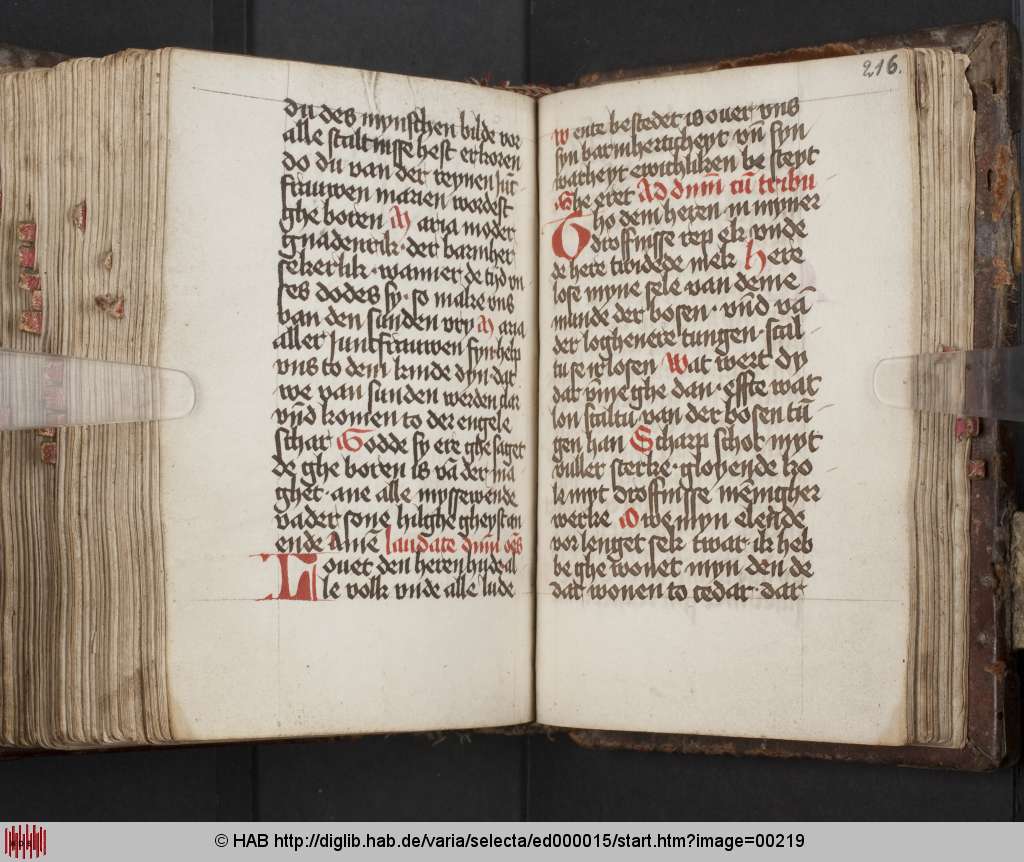 du des mynschen bilde vor
alle staltnisse hest erkoren
do du van der reynen juͤc
frauwen marien wordest
ghe boren Maria moder
gnadenrik · der barmher
sekerlik · wanner de tijd vn
ses dodes sy · so make vns
van den sunden vry Maria
aller junkfrauwen syn · help
vns to dem kinde dyn · dat
we van sunden werden clar
vn̄d komen to der engele
schar Godde sy ere ghe saget
de ghe boren is vā der mā
ghet · ane alle myssewende
vader sone hilghe gheyst an
ende Amē laudate dnm̄ oēs
Louet den heren hyde al
le volk vnde alle lude
216.
wente bestedet is ouer vns
syn barmherticheyt vn̄ syn
warheyt ewichliken be steyt
Ghe eret Ad dnm̄ cū tribu
Tho dem heren in myner
droffnisse rep ek vnde
de here twidede mek Here
lose myne sele van deme
munde der bosen · vn̄d vā
der loghenere tungen · scal
tu se wlosen Wat wert dy
dat vm̄e ghe dan · effte wat
lon scaltu van der bosen tū
gen han Scharp schot myt
vuller sterke · gloyende ko
le myt droffnisse mēnigher
werke O we myn elende
vor lenget sek twar · ik heb
be ghe wonet myn den de
dar wonen to cedar · dar
© HAB http://diglib.hab.de/varia/selecta/ed000015/start.htm?image=00219